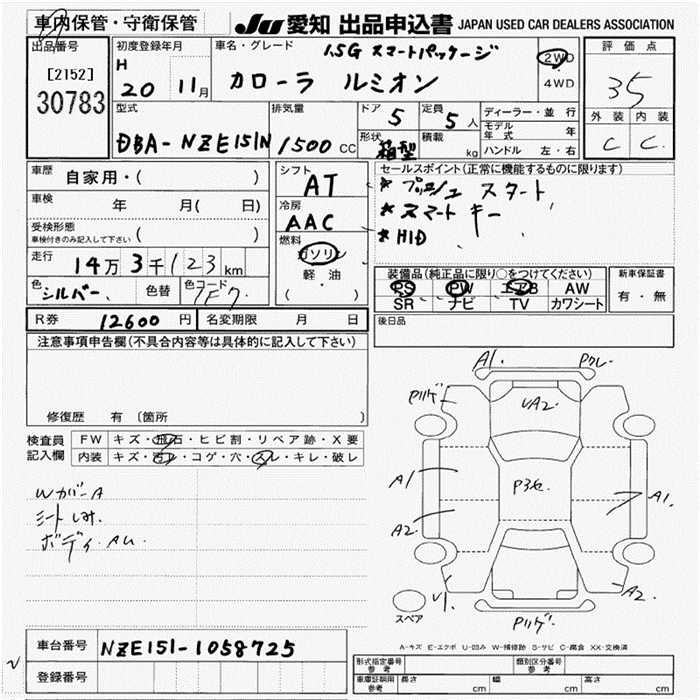 車内保管・守衛保管
JU 愛知 出品申込書 JAPAN USED CAR DEALERS ASSOCIATION
出品番号
[2152]
30783
初度登録年月
H 20 11月
車名・グレード
1.5G スマートパッケージ
カローラ ルミオン
2WD
4WD
評価点
35
外装 内装
C C
型式
DBA-NZE151N
排気量
1500 CC
ドア 5
定員 5 人
形状 箱型
積載 kg
ディーラー・並行
モデル年式 年
ハンドル 左・右
車歴 自家用・( )
車検 年 月( 日)
受検形態
車検付きのみ記入して下さい ( )
走行 14万3千123km
色 シルバー 色替 色コード 1F7
シフト AT
冷房 AAC
燃料
ガソリン
軽・油
( )
セールスポイント(正常に機能するものに限ります)
* プッシュ スタート
* スマート キー
* HID
装備品(純正品に限り○をつけてください)
PS PW エアB AW
SR ナビ TV カワシート
新車保証書
有・無
後日品
R券 12600 円 名変期限 月 日
注意事項申告欄(不具合内容等は具体的に記入して下さい)
修復歴 有 〔箇所 〕
検査員記入欄
FW キズ・飛石・ヒビ割・リペア跡・X要
内装 キズ・汚レ・コゲ・穴・スレ・キレ・破レ
WカバーA
シートしみ.
ボディ.AU.
A1.
UA2.
P3セ
A1
A2
A1.
A2.
U1
スペア
A-キズ E-エクボ U-凹み W-補修跡 S-サビ C-腐食 XX-交換済
車台番号 NZE151-1058725
登録番号
形式指定番号 参考
類別区分番号 参考
車庫証明用 参考 長さ cm 幅 cm 高さ cm